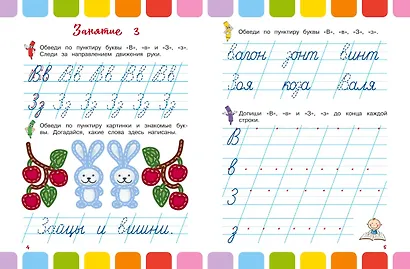 Занятие 3
Обведи по пунктиру буквы «В», «в» и «З», «з».
Следи за направлением движения руки.
Вв Вв Вв Вв Вв
Зз Зз Зз Зз Зз
Обведи по пунктиру картинки и знакомые бук-
вы. Догадайся, какие слова здесь написаны.
Зайцы и вишни.
4
Обведи по пунктиру буквы «В», «в» и «З», «з».
вагон зонт винт
Зоя коза Валя
Допиши «В», «в» и «З», «з» до конца каждой
строки.
В
в
З
з
5